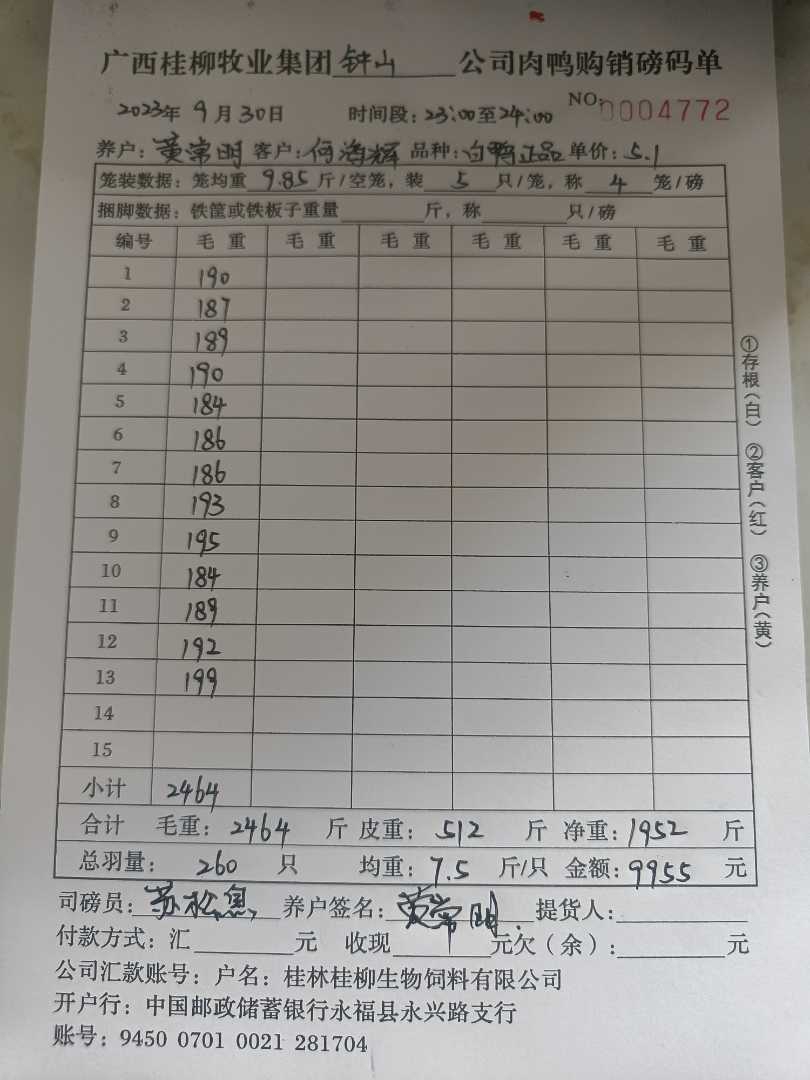 广西桂柳牧业集团 钟山 公司肉鸭购销磅码单
2023年 9 月 30 日 时间段: 23:00 至 24:00 NO: 0004772
养户: 黄常明 客户: 何海辉 品种: 白鸭正品 单价: 5.1
笼装数据: 笼均重 9.85 斤/空笼, 装 5 只/笼, 称 4 笼/磅
捆脚数据: 铁筐或铁板子重量 斤, 称 只/磅
编号 毛重 毛重 毛重 毛重 毛重 毛重
1 190
2 187
3 189
4 190
5 184
6 186
7 186
8 193
9 195
10 184
11 189
12 192
13 199
14
15
小计 2464
合计 毛重: 2464 斤 皮重: 512 斤 净重: 1952 斤
总羽量: 260 只 均重: 7.5 斤/只 金额: 9955 元
司磅员: 苏松 养户签名: 黄常明 提货人:
付款方式: 汇 元 收现 元欠(余): 元
公司汇款账号: 户名: 桂林桂柳生物饲料有限公司
开户行: 中国邮政储蓄银行永福县永兴路支行
账号: 9450 0701 0021 281704
①存根(白) ②客户(红) ③养户(黄)